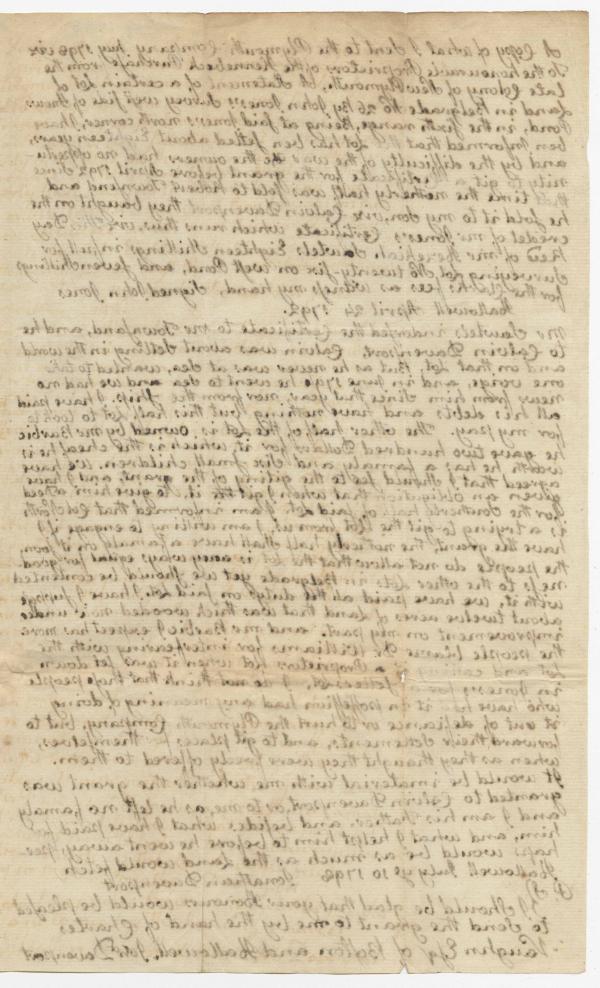 A Copy of what I sent to the Plymouth Company July 1798 viz
To the honourable Proprietors of the Kennebeck Purchase from the
late Colony of New Plymouth, A Statement of a certain Lot of
Land in Belgrade No 26 By John Jones's Survey west side of Snows
Pond, in the sixth range, Being at said Jones's north corner, I have
ben Informed that the Lot has ben setled about Eighteen years,
and by the difficulty of the war &c the owners had no oppertu
nity to git a Certificate for the grant before April 1792 Since
that time the northerly half was sold to Robert Townsend and
he sold it to my son, viz. Calvin Davenport they bought on the
credet of mr Jones's Certificate which runs thus, viz, this Day
Recd of mr Hezekiah Sawtels Eighteen shillings in full for
surveying Lot No twenty-six on West Pond, and seven shillings
for the Clarks fees as witness my hand, Signed John Jones
Hallowell April 24 1792.
Mr Sawtels indorsed the Certificate to mr Townsend, and he
to Calvin Davenport. Calvin was about setling in the world
and on that Lot. But as he never was at sea, wanted to take
one voige, and in June 1796 he went to sea and we had no
news from him since that year, nor from the Ship, I have paid
all his debts and have nothing but this half Lot to look to
for my pay. The other half of the Lot is owned by mr Burbie
he gave two hundred Dollars for it, which is the cheaf he is
worth he has a famaly and six small children, we have
agreed that I should see to the giting of the grant, and I have
given an obligation that when I git the it, to give him a Deed
for the Southerly half of said Lot. I am informed that Col. Smith
is a trying to git the Lot from us, I am willing to engage if I
have the grant, the notherly half shall have a famaly on it soon,
the people do not allow that the lot is aney ways equal for good
ness to the other Lots in Belgrade yet we should be contented
with it, we have paid all the dutys on said Lot. I have I suppose
about twelve acres of land that was thick wooded now under
improvement on my part, and mr Burbie I expect has more
the people blame Dr Williams for interfearing with this
Lot and calling a Proprietors Lot when it was set down
in Jones's for a setlers Lot. I do not think that those people
who have had it in possession had any meaning of doing
it out of defiance or to hurt the Plymouth Company, but to
forward their Settlements, and to git places for themselves,
when as they thought they were freely offered to them.
It would be imaterial with me whether the grant was
granted to Calvin Davenport, or to me, as he left no famaly
and I am his Father, and besides what I have paid for
him, and what I helpt him to before he went away, per
haps would be as much as the Land would fetch
Hallowell July ye 10 1798 Jonathan Davenport
P S
I should be glad that your Honours would be pleased
to send the grant to me by the hand of Charles
Vaughn Esqr of Boston and Hallowell, Jon Davenport